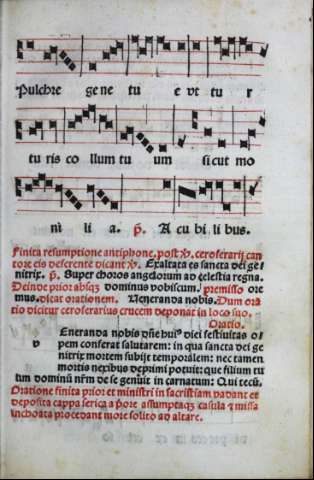 Pulchre ge ne tu e vt tu r
tu ris co llum tu um si cut mo
ni li a. p̄. A cu bi li bus.
Finita resumptione antiphone, post ꝟ. ceroferarij can
tore eis deferente dicant ꝟ. Exaltata es sancta dei ge
nitrix. p̄. Super choros angelorum ad celestia regna.
Deinde prior absqꝫ dominus vobiscum. premisso ore
mus. dicat orationem. Veneranda nobis. Dum ora
tio dicitur ceroferarius crucem deponat in loco suo.
Oratio.
v Eneranda nobis dñe huiꝰ diei festiuitas o
pem conferat salutarem: in qua sancta dei ge
nitrix mortem subijt temporalem: nec tamen
mortis nexibus deprimi potuit: que filium tu
um dominū nr̄m de se genuit incarnatum: Qui tecū.
Oratione finita prior et ministri in sacristiam vadant et
deposita cappa serica a pōre assumptaqꝫ casula ⁊ missa
inchoata procedant more solito ad altare.